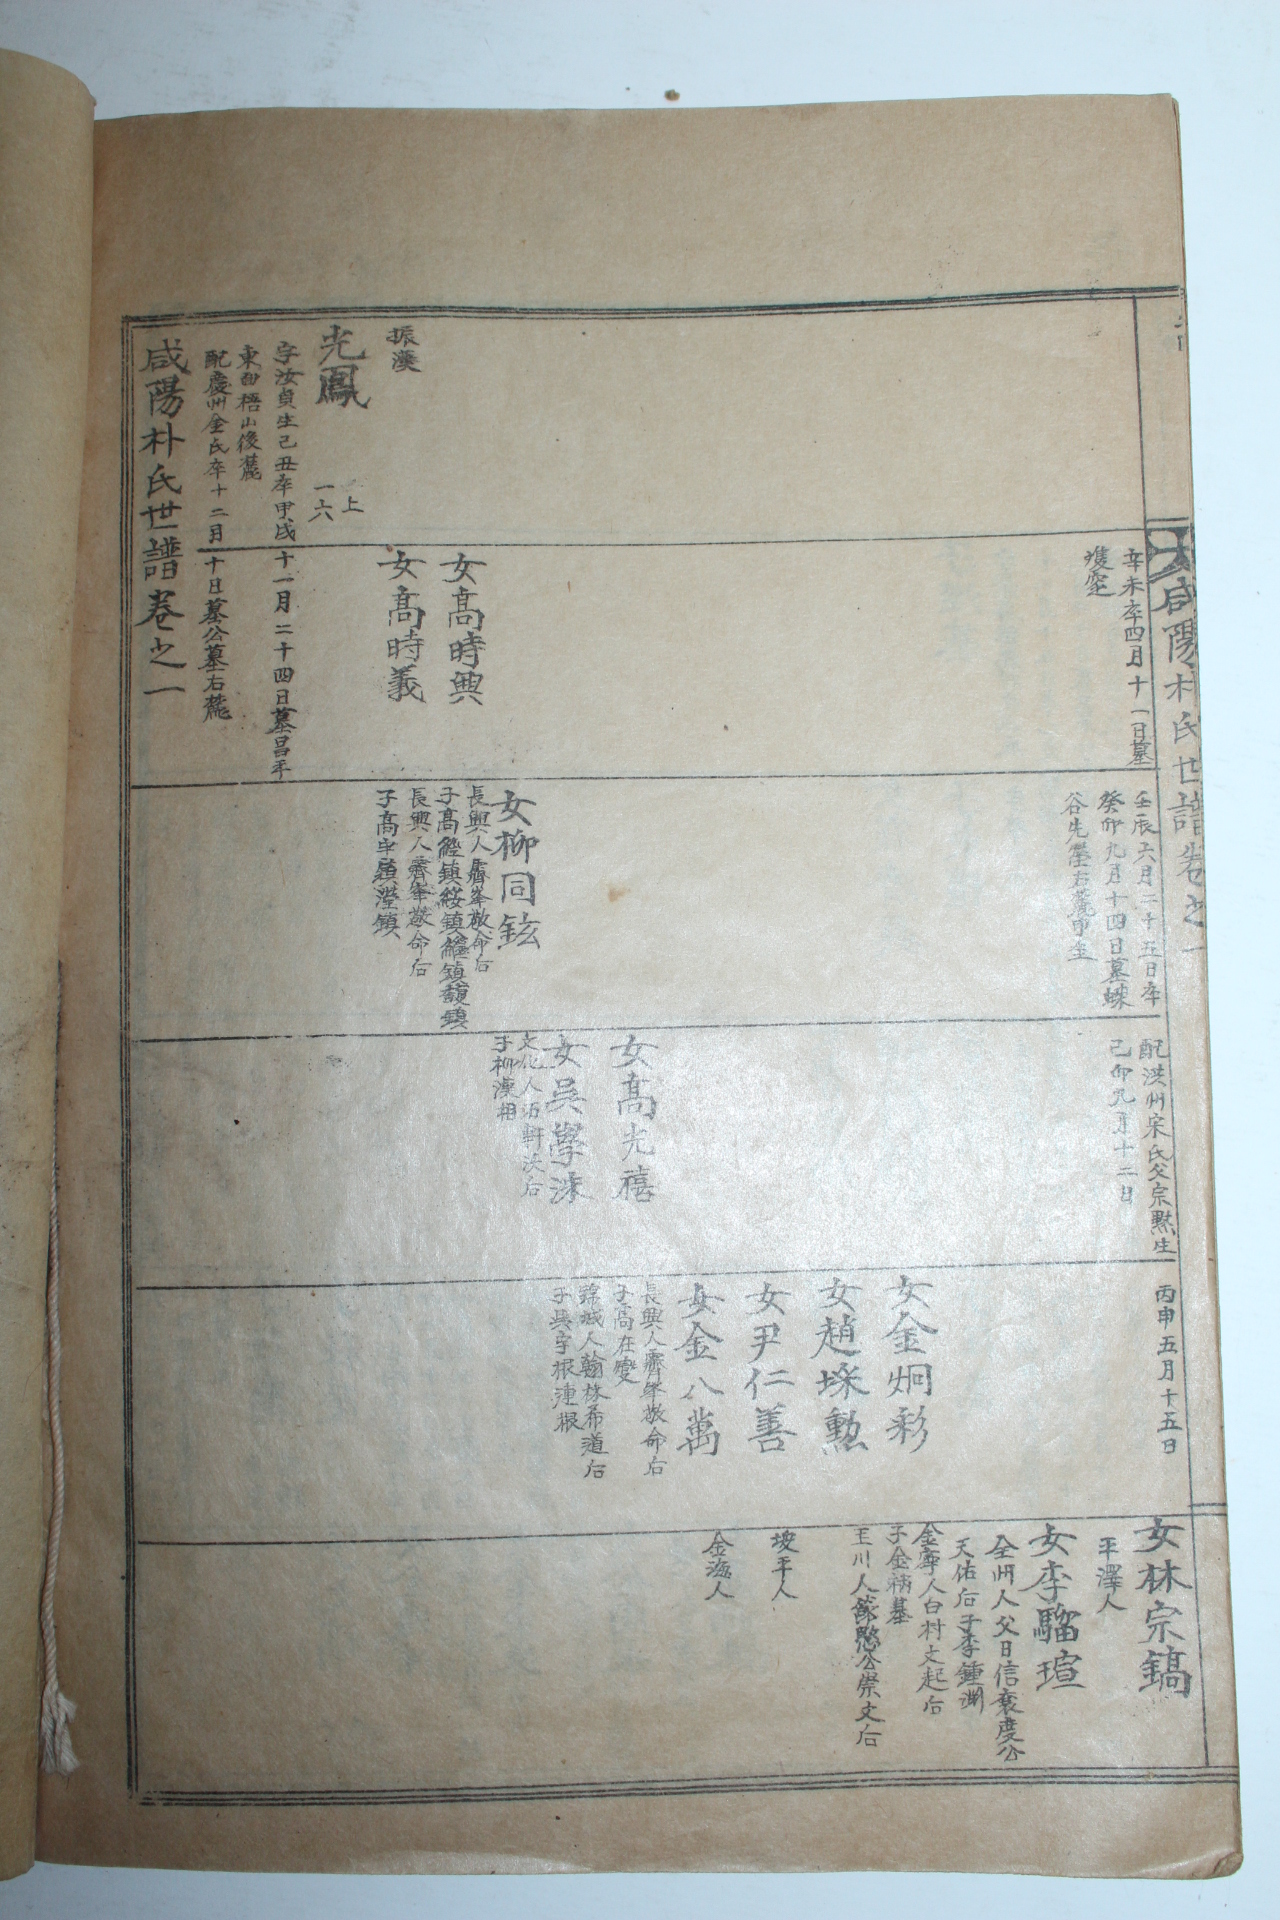 咸陽朴氏世譜卷之一
振漢
光鳳
上
一六
字汝貞生己丑卒甲戌十一月二十四日墓昌平
東面梧山後麓
配慶州金氏卒十二月十日墓公墓右麓
咸陽朴氏世譜卷之一
辛未卒四月十一日墓
雙窆
女高時興
女高時義
壬辰六月二十五日卒
癸卯九月十四日墓蛛
谷先塋右麓甲坐
女柳同鉉
長興人霽峯敬命后
子高
長興人霽峯敬命后
子高
配洪州宋氏父宗黙生
己卯九月十二日
女高光禧
女吳學洙
文化人
子柳漢相
丙申五月十五日
女金炯彩
女趙埰勳
女尹仁善
女金八萬
長興人霽峯敬命后
子高在燮
錦城人翰林希道后
子吳字根連根
女林宗鎬
平澤人
女李騮瑄
全州人父日信襄度公
天佑后子李鍾淵
金寧人白村文起后
子金
玉川人節愍公崇文后
坡平人
金海人